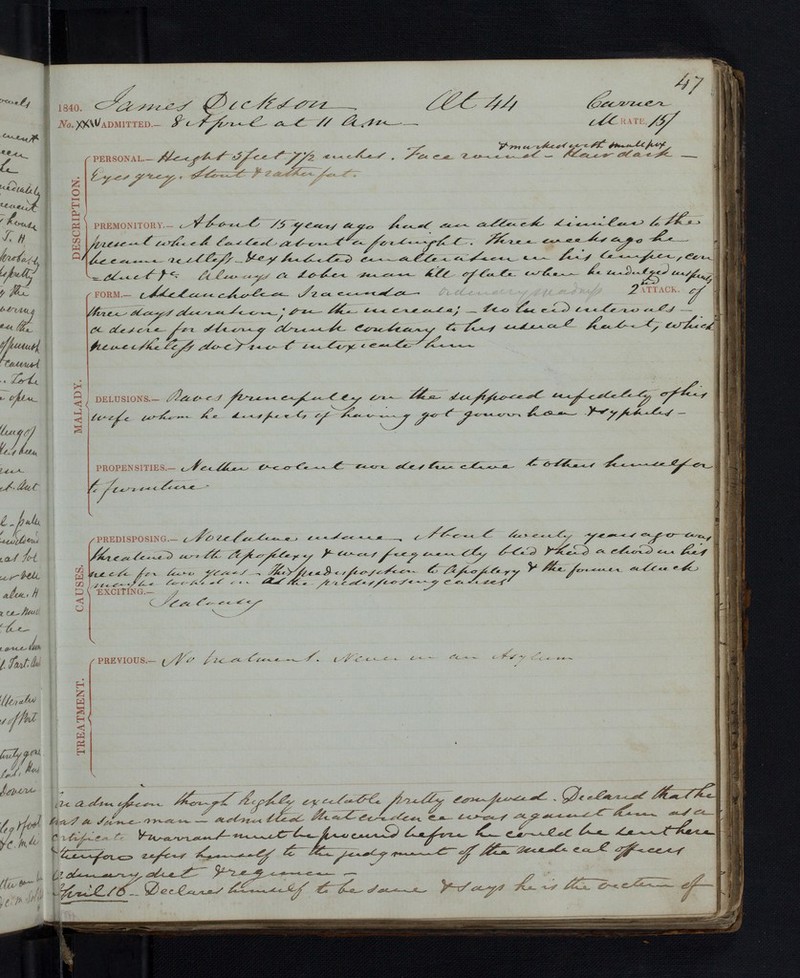 47
1840. James Dickson Æt 44 Carrier
No. XXIV ADMITTED.— 8 April at 11 a.m. M RATE. 15/
& marked with small pox
DESCRIPTION.
PERSONAL.— Height 5 feet 7½ inches. Face round - Hair dark —
Eyes grey. Stout & rather fat.
PREMONITORY.— About 15 years ago had an attack similar to the
present which lasted about a fortnight. Three weeks ago he
became restless. & exhibited an alteration in his temper, con
=duct &c Always a sober man till of late when he indulged
MALADY.
FORM.— Melancholia Iracunda ordinary madness 2nd ATTACK. of
three days duration; on the increase; — no lucid intervals —
a desire for strong drink contrary to his usual habit, which
nevertheless does not intoxicate him
DELUSIONS.— Raves principally on the supposed infidelity of his
wife whom he suspects of having got gonorrhœa & syphilis —
PROPENSITIES.— Neither violent nor destructive to others himself or
to furniture
CAUSES.
PREDISPOSING.— No relative insane About twenty years ago was
threatened with Apoplexy & was frequently bled & had a chord in his
neck for two years. This predisposition to Apoplexy & the former attack
may be looked on as the predisposing causes
EXCITING.—
Jealousy
TREATMENT.
PREVIOUS.— No treatment. Never in an Asylum
On admission though highly excitable pretty composed. Declared that he
was a sane man — admitted that evidence was against him as a
certificate & warrant must be procured before he could be sent here
& therefore refers himself to the judgment of the medical officers
Ordinary diet & regimen —
April 16 - Declares himself to be sane & says he is the victim of